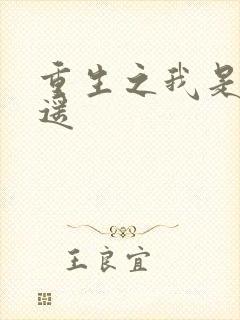 重生之我是
遥
王良宜